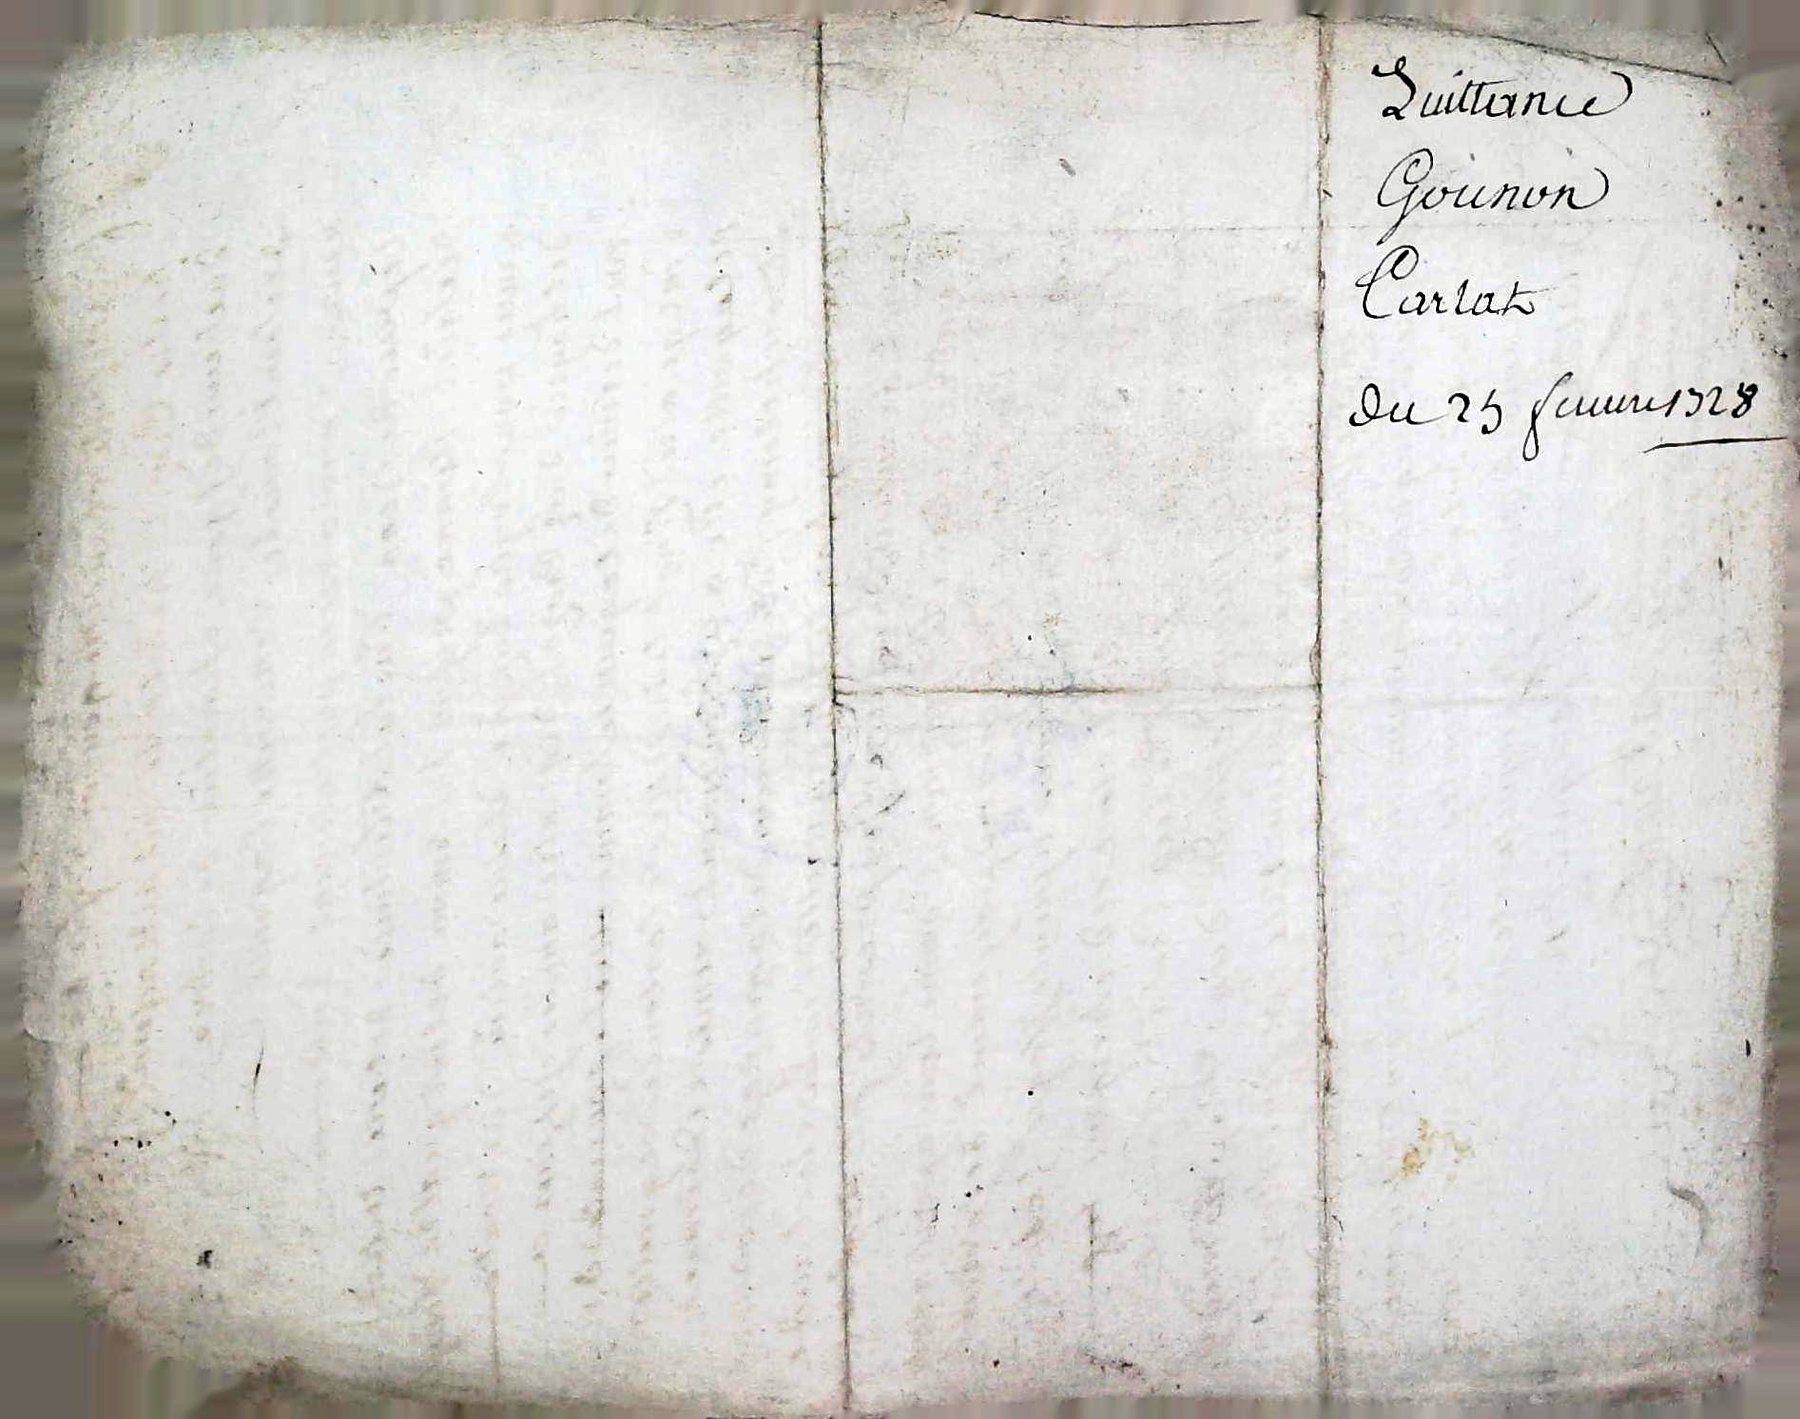 Quittance
Gounon
Carlat
du 25 feuvrier 1328